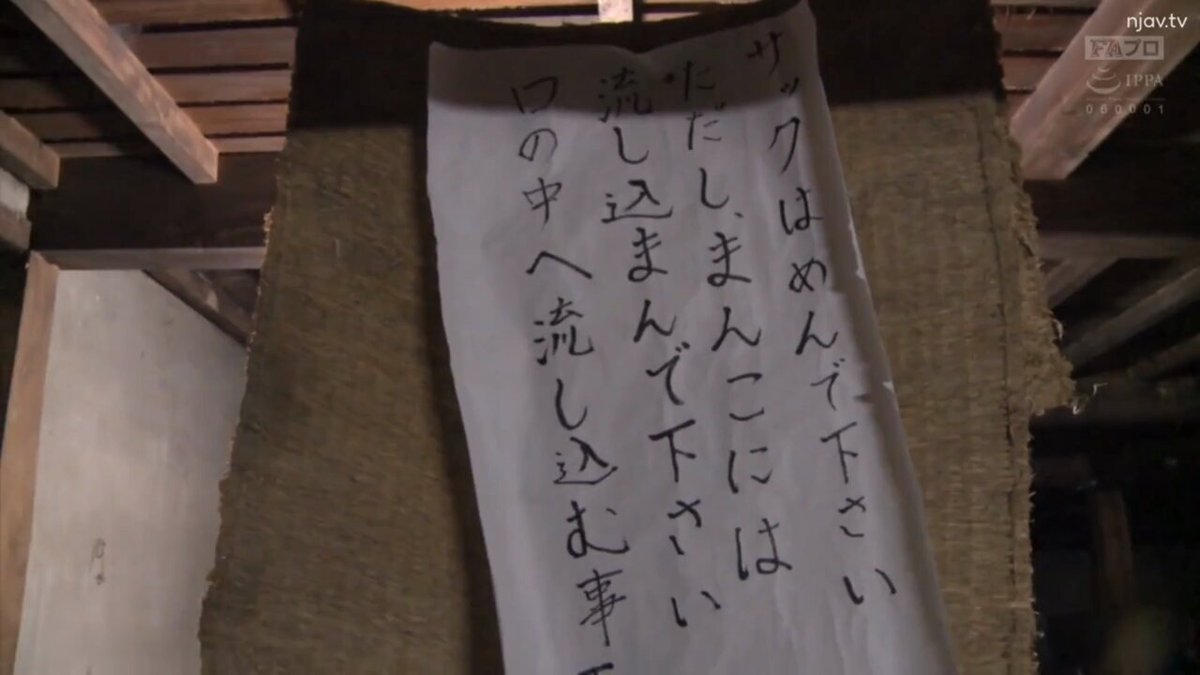 njav.tv
FAプロ
IPPA
060001
サックはめんで下さい
ただし、まんこには
流し込まんで下さい
口の中へ流し込む事